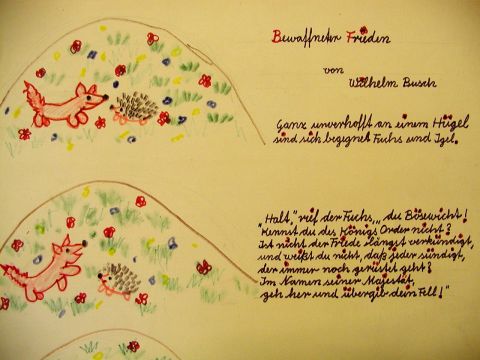 Bewaffneter Frieden
von
Wilhelm Busch
Ganz unverhofft an einem Hügel
sind sich begegnet Fuchs und Igel.
„Halt," rief der Fuchs, „du Bösewicht!
Kennst du des Königs Order nicht?
Ist nicht der Friede längst verkündigt,
und weißt du nicht, daß jeder sündigt,
der immer noch gerüstet geht?
Im Namen seiner Majestät,
geh her und übergib dein Fell!"